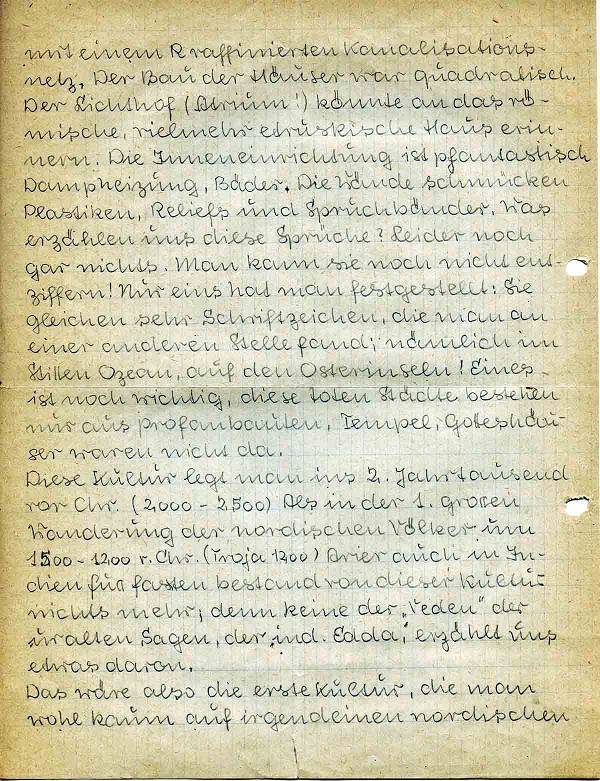 mit einem raffinierten Kanalisations-
netz. Der Bau der Häuser war quadratisch.
Der Lichthof (Atrium!) könnte an das rö-
mische, vielmehr etruskische Haus erin-
nern. Die Inneneinrichtung ist phantastisch
Dampheizung, Bäder. Die Wände schmücken
Plastiken, Reliefs und Spruchbänder. Was
erzählen uns diese Sprüche? Leider noch
gar nichts. Man kann sie noch nicht ent-
ziffern! Nur eins hat man festgestellt: Sie
gleichen sehr Schriftzeichen, die man an
einer anderen Stelle fand; nämlich im
Stillen Ozean, auf den Osterinseln! Eines
ist noch wichtig, diese toten Städte bestehen
nur aus Profanbauten. Tempel, Goteshäu-
ser waren nicht da.
Diese Kultur legt man ins 2. Jahrtausend
vor Chr. (2000 - 2500) Als in der 1. großen
Wanderung der nordischen Völker um
1500 - 1200 v. Chr. (Troja 1200) Arier auch in In-
dien fuß fasten bestand von dieser Kultur
nichts mehr; denn keine der „Veden" der
uralten Sagen, der „ind. Edda", erzählt uns
etwas davon.
Das wäre also die erste Kultur, die man
wohl kaum auf irgendeinen nordischen